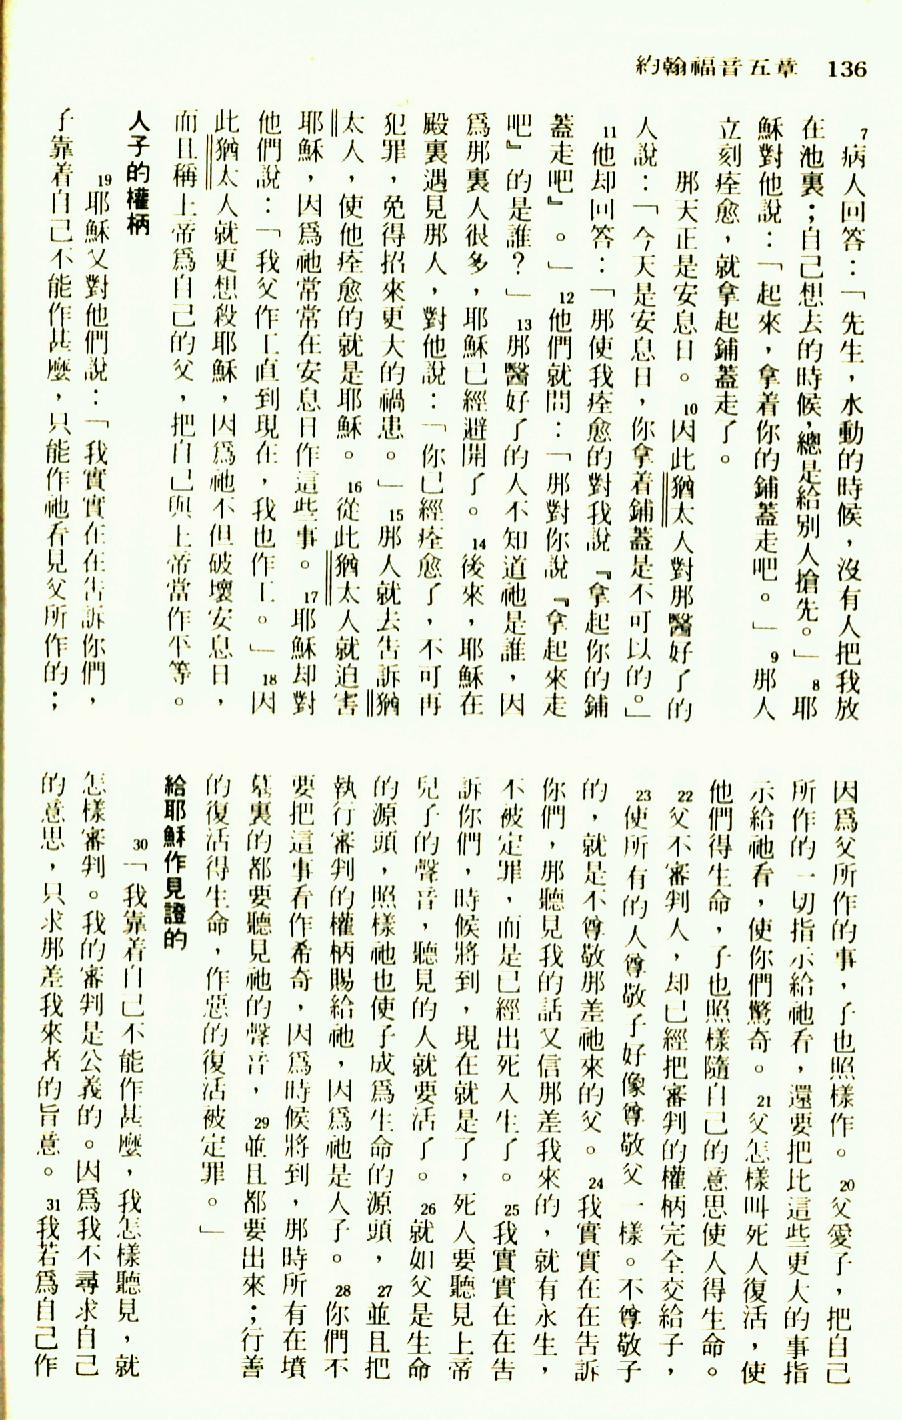 136 約翰福音五章
7病人回答：「先生，水動的時候，沒有人把我放
在池裏；自己想去的時候，總是給別人搶先。」8耶
穌對他說：「起來，拿着你的鋪蓋走吧。」9那人
立刻痊愈，就拿起鋪蓋走了。
那天正是安息日。10因此猶太人對那醫好了的
人說：「今天是安息日，你拿着鋪蓋是不可以的。」
11他却回答：「那使我痊愈的對我說『拿起你的鋪
蓋走吧』。」12他們就問：「那對你說『拿起來走
吧』的是誰？」13那醫好了的人不知道祂是誰，因
爲那裏人很多，耶穌已經避開了。14後來，耶穌在
殿裏遇見那人，對他說：「你已經痊愈了，不可再
犯罪，免得招來更大的禍患。」15那人就去告訴猶
太人，使他痊愈的就是耶穌。16從此猶太人就迫害
耶穌，因爲祂常常在安息日作這些事。17耶穌却對
他們說：「我父作工直到現在，我也作工。」18因
此猶太人就更想殺耶穌，因爲祂不但破壞安息日，
而且稱上帝爲自己的父，把自己與上帝當作平等。
人子的權柄
19耶穌又對他們說：「我實實在在告訴你們，
子靠着自己不能作甚麼，只能作祂看見父所作的；
因爲父所作的事，子也照樣作。20父愛子，把自己
所作的一切指示給祂看，還要把比這些更大的事指
示給祂看，使你們驚奇。21父怎樣叫死人復活，使
他們得生命，子也照樣隨自己的意思使人得生命。
22父不審判人，却已經把審判的權柄完全交給子，
23使所有的人尊敬子好像尊敬父一樣。不尊敬子
的，就是不尊敬那差祂來的父。24我實實在在告訴
你們，那聽見我的話又信那差我來的，就有永生，
不被定罪，而是已經出死入生了。25我實實在在告
訴你們，時候將到，現在就是了，死人要聽見上帝
兒子的聲音，聽見的人就要活了。26就如父是生命
的源頭，照樣祂也使子成爲生命的源頭，27並且把
執行審判的權柄賜給祂，因爲祂是人子。28你們不
要把這事看作希奇，因爲時候將到，那時所有在墳
墓裏的都要聽見祂的聲音，29並且都要出來；行善
的復活得生命，作惡的復活被定罪。」
給耶穌作見證的
30「我靠着自己不能作甚麼，我怎樣聽見，就
怎樣審判。我的審判是公義的。因爲我不尋求自己
的意思，只求那差我來者的旨意。31我若爲自己作